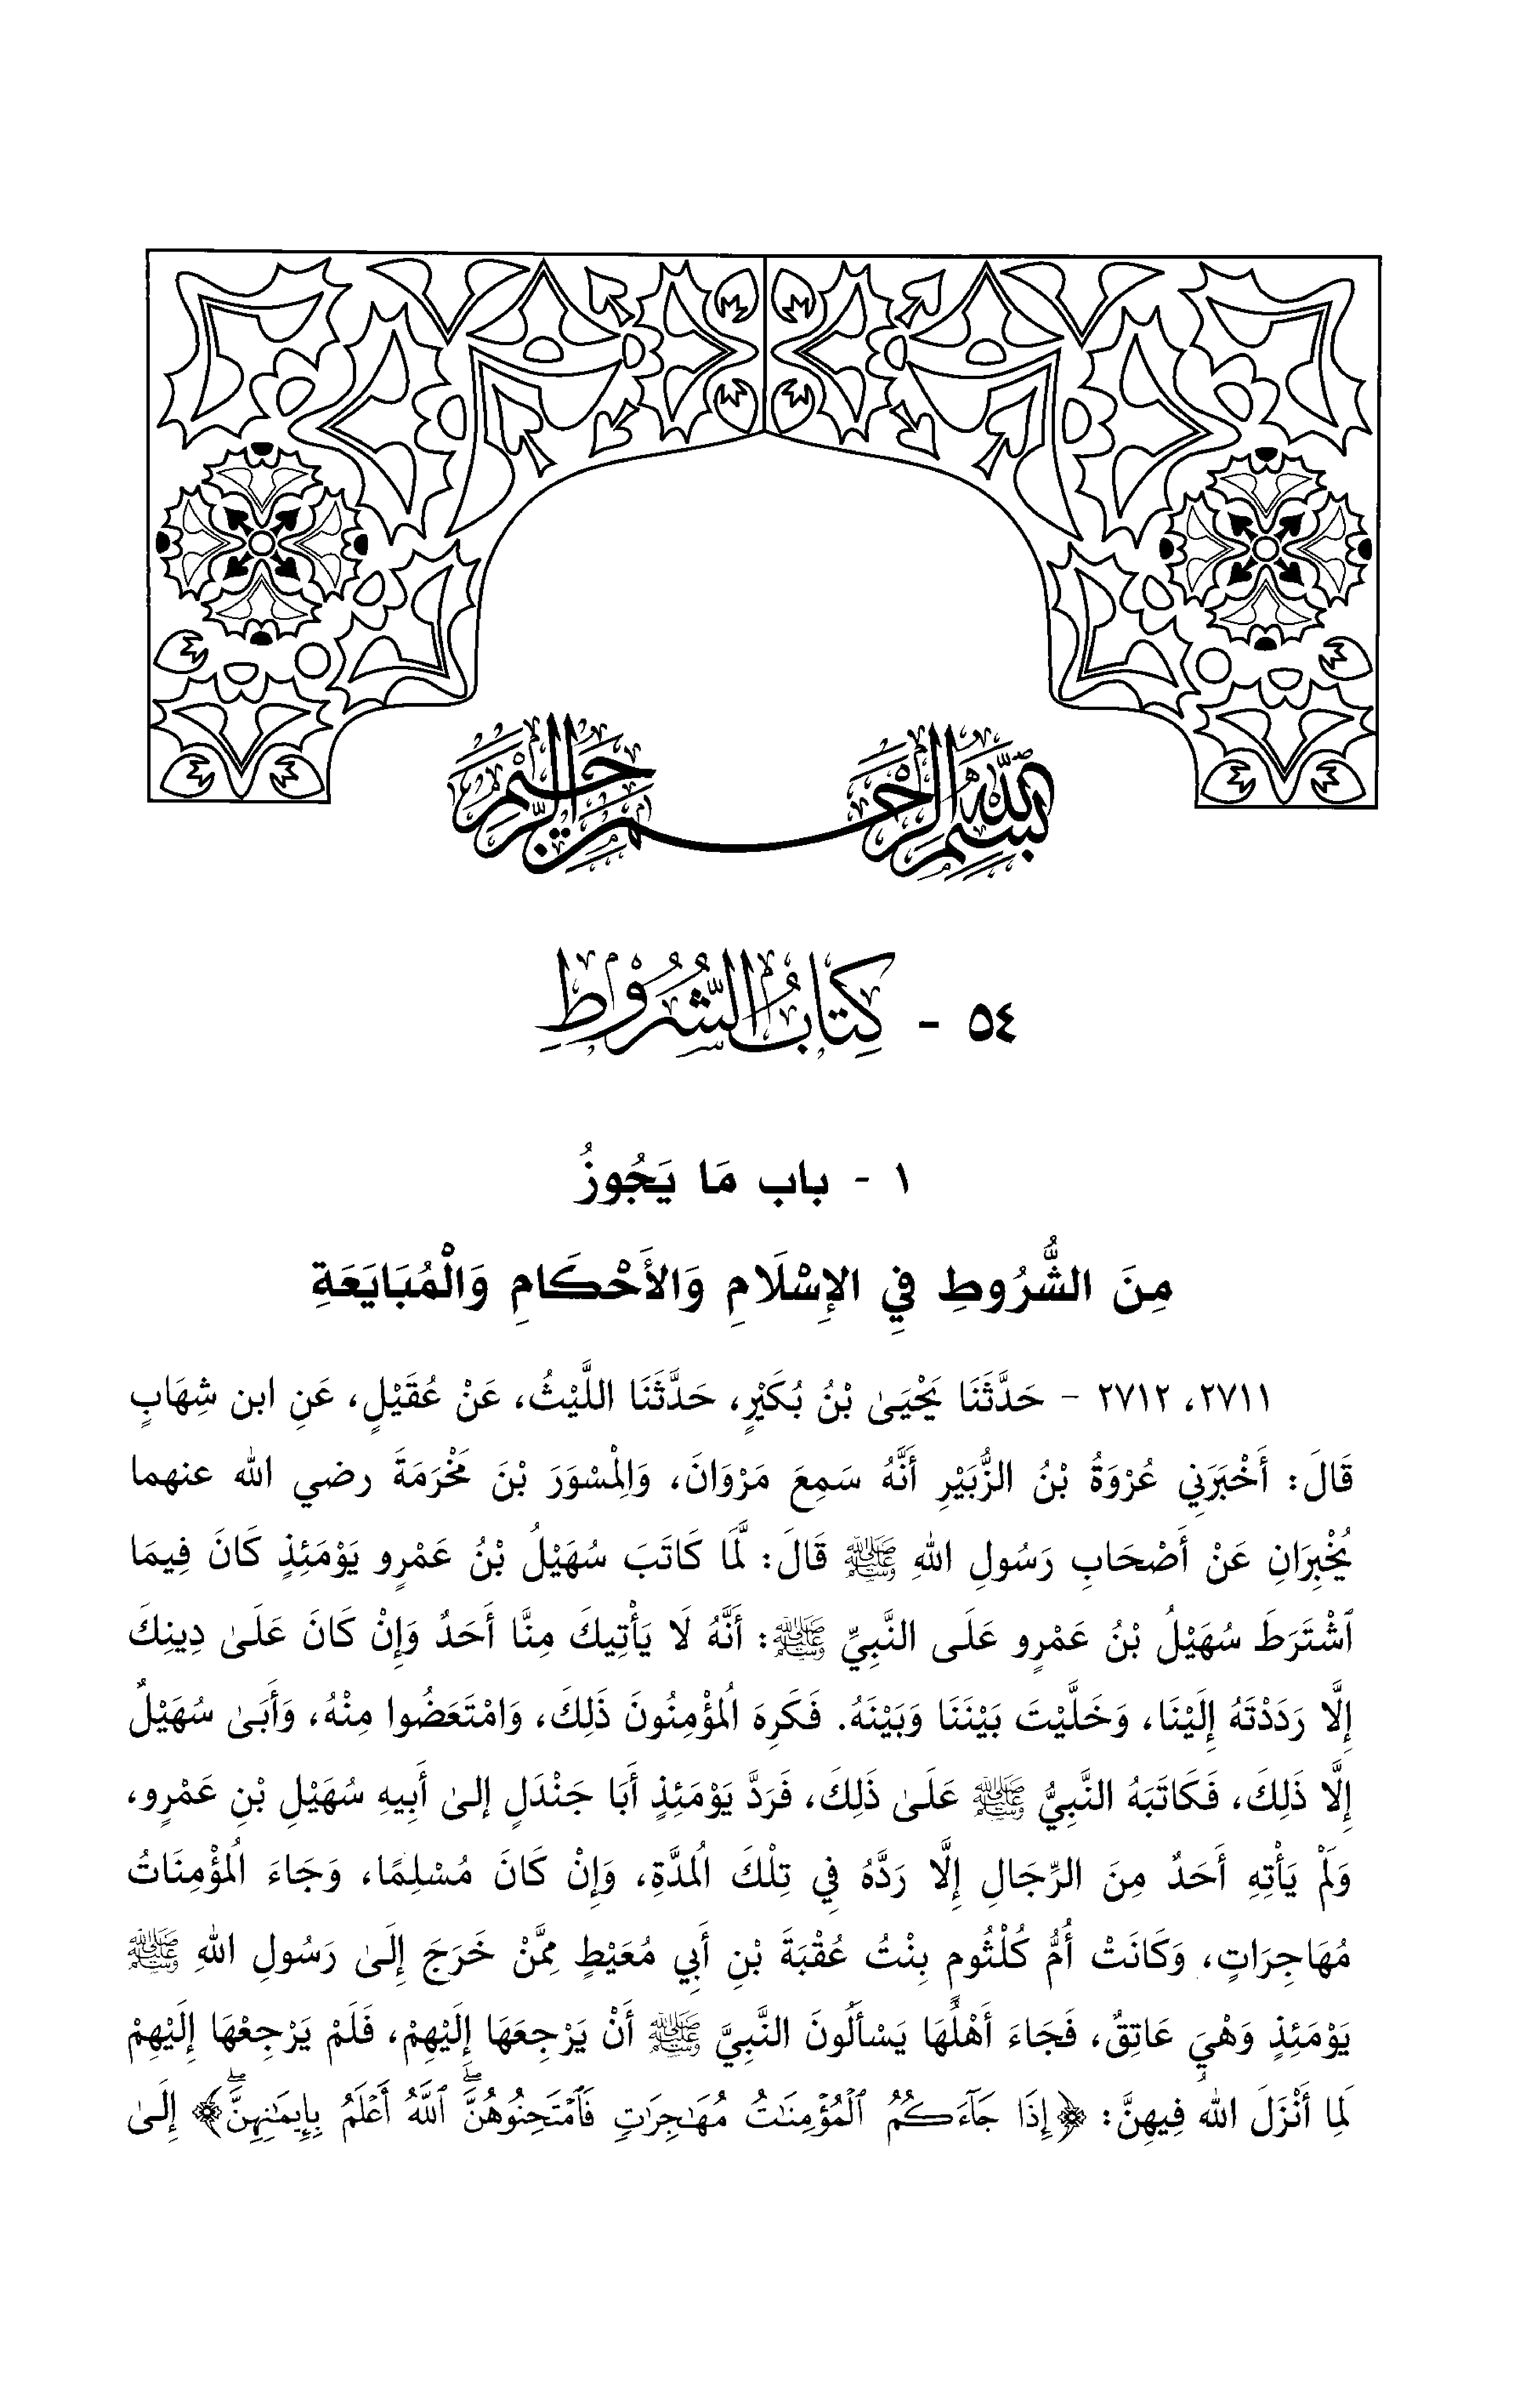 بِسْمِ اللهِ الرَّحْمٰنِ الرَّحِيمِ
٥٤ - كِتَابُ الشُّرُوطِ
١ - باب مَا يَجُوزُ
مِنَ الشُّرُوطِ فِي الإِسْلَامِ وَالأَحْكَامِ وَالْمُبَايَعَةِ
٢٧١١، ٢٧١٢ - حَدَّثَنَا يَحْيَىٰ بْنُ بُكَيْرٍ، حَدَّثَنَا اللَّيْثُ، عَنْ عُقَيْلٍ، عَنِ ابن شِهَابٍ
قَالَ: أَخْبَرَنِي عُرْوَةُ بْنُ الزُّبَيْرِ أَنَّهُ سَمِعَ مَرْوَانَ، وَالْمِسْوَرَ بْنَ مَخْرَمَةَ رضي الله عنهما
يُخْبِرَانِ عَنْ أَصْحَابِ رَسُولِ اللهِ ﷺ قَالَ: لَمَّا كَاتَبَ سُهَيْلُ بْنُ عَمْرٍو يَوْمَئِذٍ كَانَ فِيمَا
ٱشْتَرَطَ سُهَيْلُ بْنُ عَمْرٍو عَلَى النَّبِيِّ ﷺ: أَنَّهُ لَا يَأْتِيكَ مِنَّا أَحَدٌ وَإِنْ كَانَ عَلَىٰ دِينِكَ
إِلَّا رَدَدْتَهُ إِلَيْنَا، وَخَلَّيْتَ بَيْنَنَا وَبَيْنَهُ. فَكَرِهَ الُمؤْمِنُونَ ذَلِكَ، وَامْتَعَضُوا مِنْهُ، وَأَبَىٰ سُهَيْلٌ
إِلَّا ذَلِكَ، فَكَاتَبَهُ النَّبِيُّ ﷺ عَلَىٰ ذَلِكَ، فَرَدَّ يَوْمَئِذٍ أَبَا جَنْدَلٍ إلىٰ أَبِيهِ سُهَيْلِ بْنِ عَمْرٍو،
وَلَمْ يَأْتِهِ أَحَدٌ مِنَ الرِّجَالِ إِلَّا رَدَّهُ فِي تِلْكَ الُمدَّةِ، وَإِنْ كَانَ مُسْلِمًا، وَجَاءَ الُمؤْمِنَاتُ
مُهَاجِرَاتٍ، وَكَانَتْ أُمُّ كُلْثُومٍ بِنْتُ عُقْبَةَ بْنِ أَبِي مُعَيْطٍ مِمَّنْ خَرَجَ إِلَىٰ رَسُولِ اللهِ ﷺ
يَوْمَئِذٍ وَهْيَ عَاتِقٌ، فَجَاءَ أَهْلُهَا يَسْأَلُونَ النَّبِيَّ ﷺ أَنْ يَرْجِعَهَا إِلَيْهِمْ، فَلَمْ يَرْجِعْهَا إِلَيْهِمْ
لِمَا أَنْزَلَ الله فِيهِنَّ: ﴿إِذَا جَآءَكُمُ ٱلْمُؤْمِنَٰتُ مُهَٰجِرَٰتٍ فَٱمْتَحِنُوهُنَّۖ ٱللَّهُ أَعْلَمُ بِإِيمَٰنِهِنَّۖ﴾ إِلَىٰ